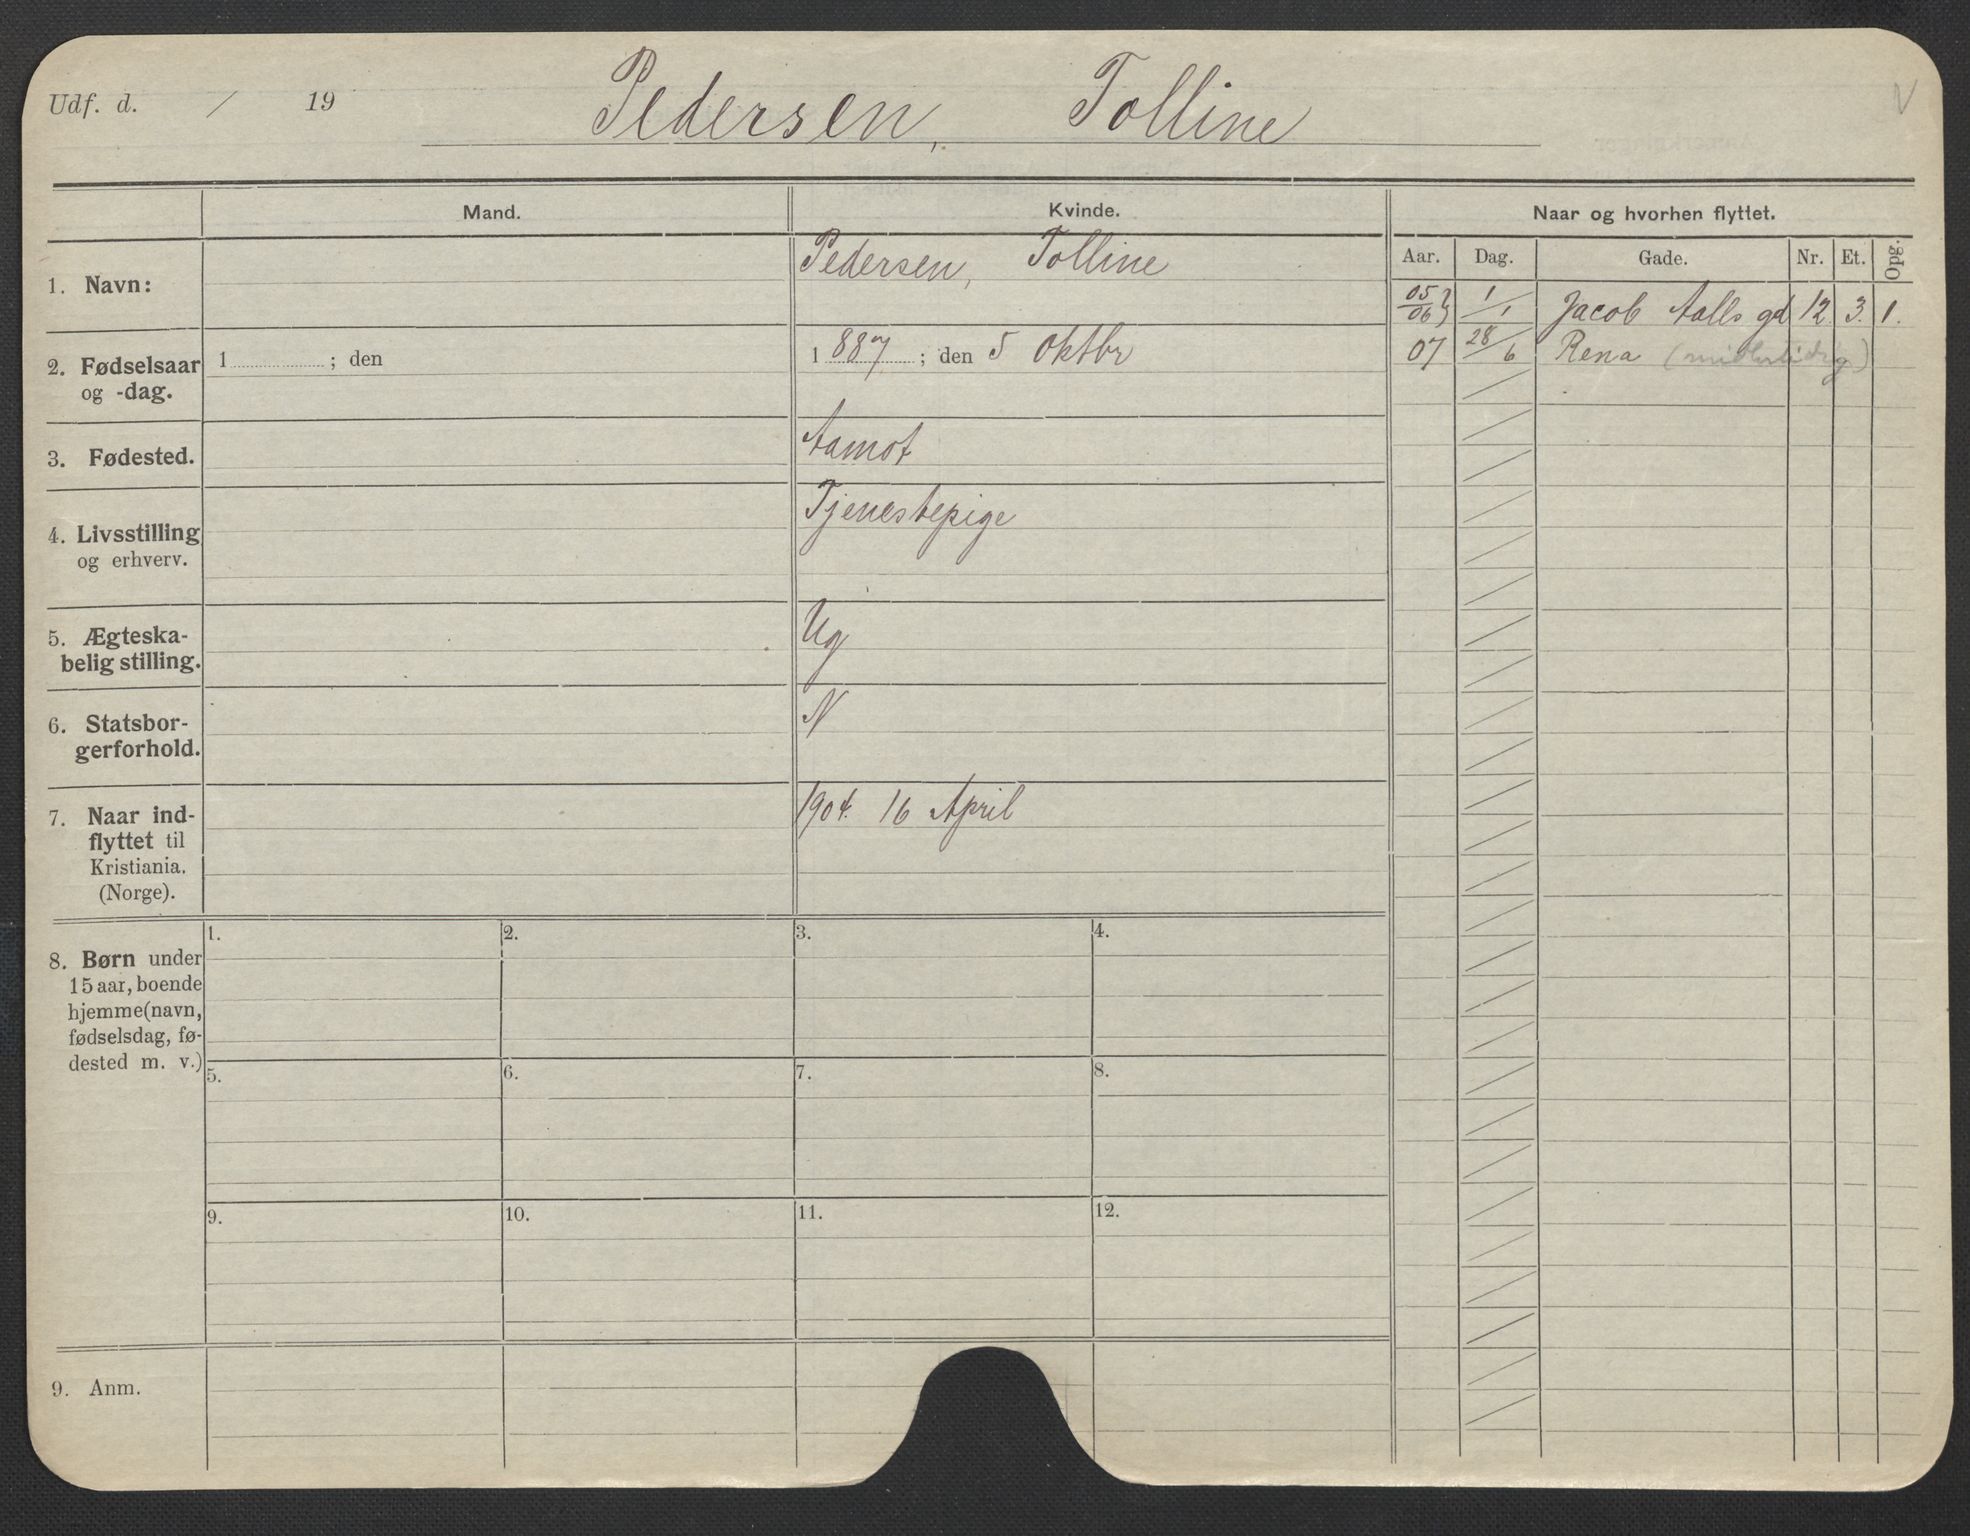 Udf. d. / 19
Pedersen, Tolline
Mand.
Kvinde.
Naar og hvorhen flyttet.
Aar. Dag. Gade. Nr. Et. Opg.
1. Navn:
Pedersen, Tolline
05/06} 1/1 Jacob Aalls gd 12. 3. 1.
07 28/6 Rena (midlertidig)
2. Fødselsaar
og -dag.
1 ; den
1 887 ; den 5 Oktbr
3. Fødested.
Aamot
4. Livsstilling
og erhverv.
Tjenestepige
5. Ægteska-
belig stilling.
Ug
6. Statsbor-
gerforhold.
N
7. Naar ind-
flyttet til
Kristiania.
(Norge).
1904. 16 April
8. Børn under
15 aar, boende
hjemme (navn,
fødselsdag, fø-
dested m. v.)
1. 2. 3. 4.
5. 6. 7. 8.
9. 10. 11. 12.
9. Anm.